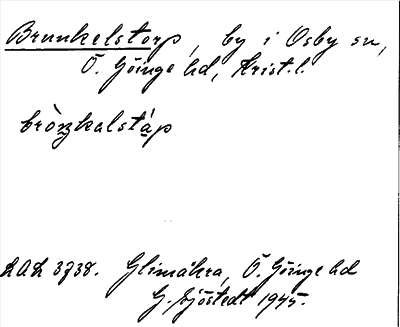 Brunkelstorp, by i Osby sn,
Ö. Göinge hd, Krist. l.
bròŋkalstáp
LAL 3738. Glimåkra, Ö. Göinge hd
G. Sjöstedt 1945.